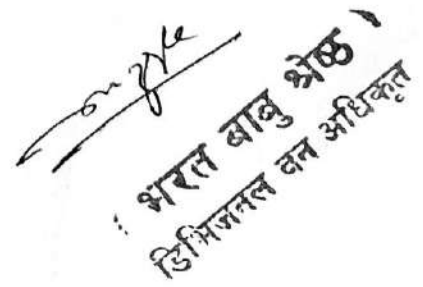 भरत बाबु श्रेष्ठ
डिभिजनल वन अधिकृत